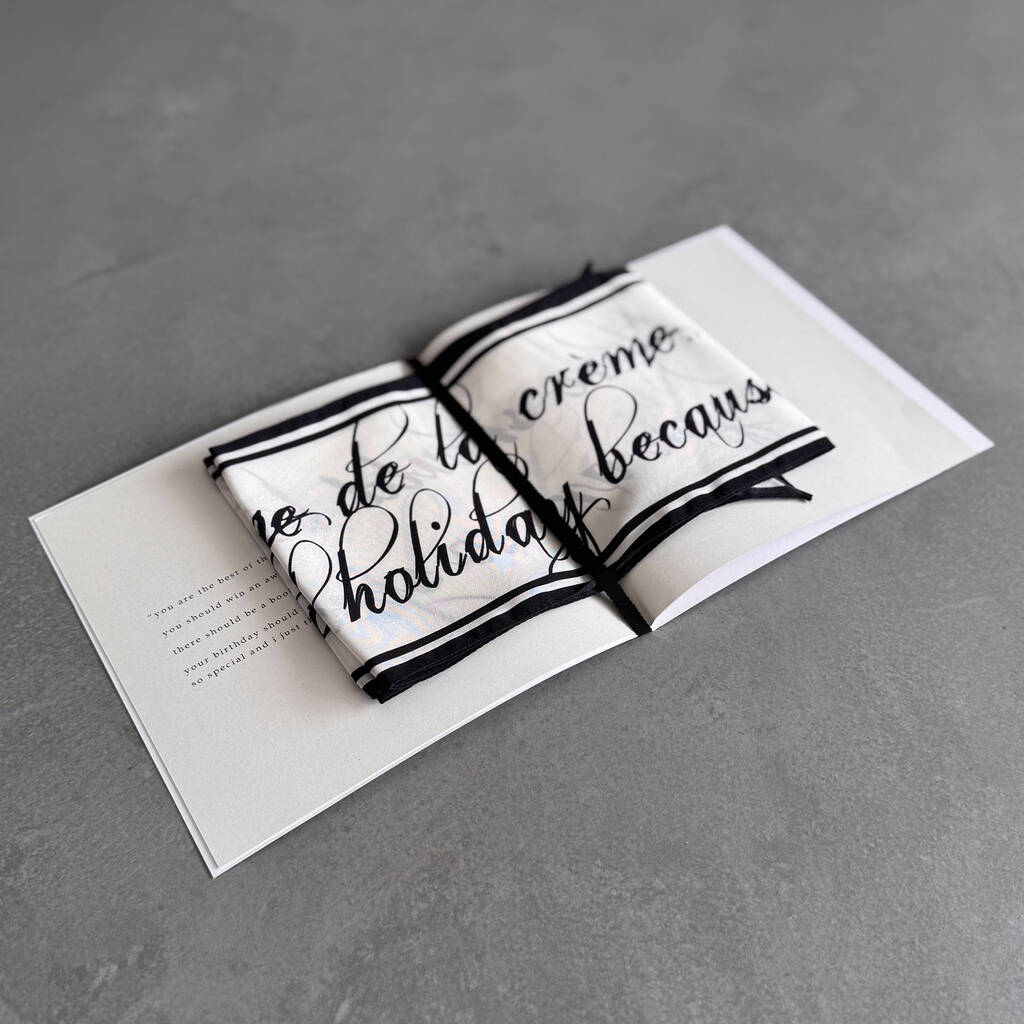 "you are the best of th
you should win an aw
there should be a boo
your birthday should
so special and i just t
de la crème.
holiday becaus